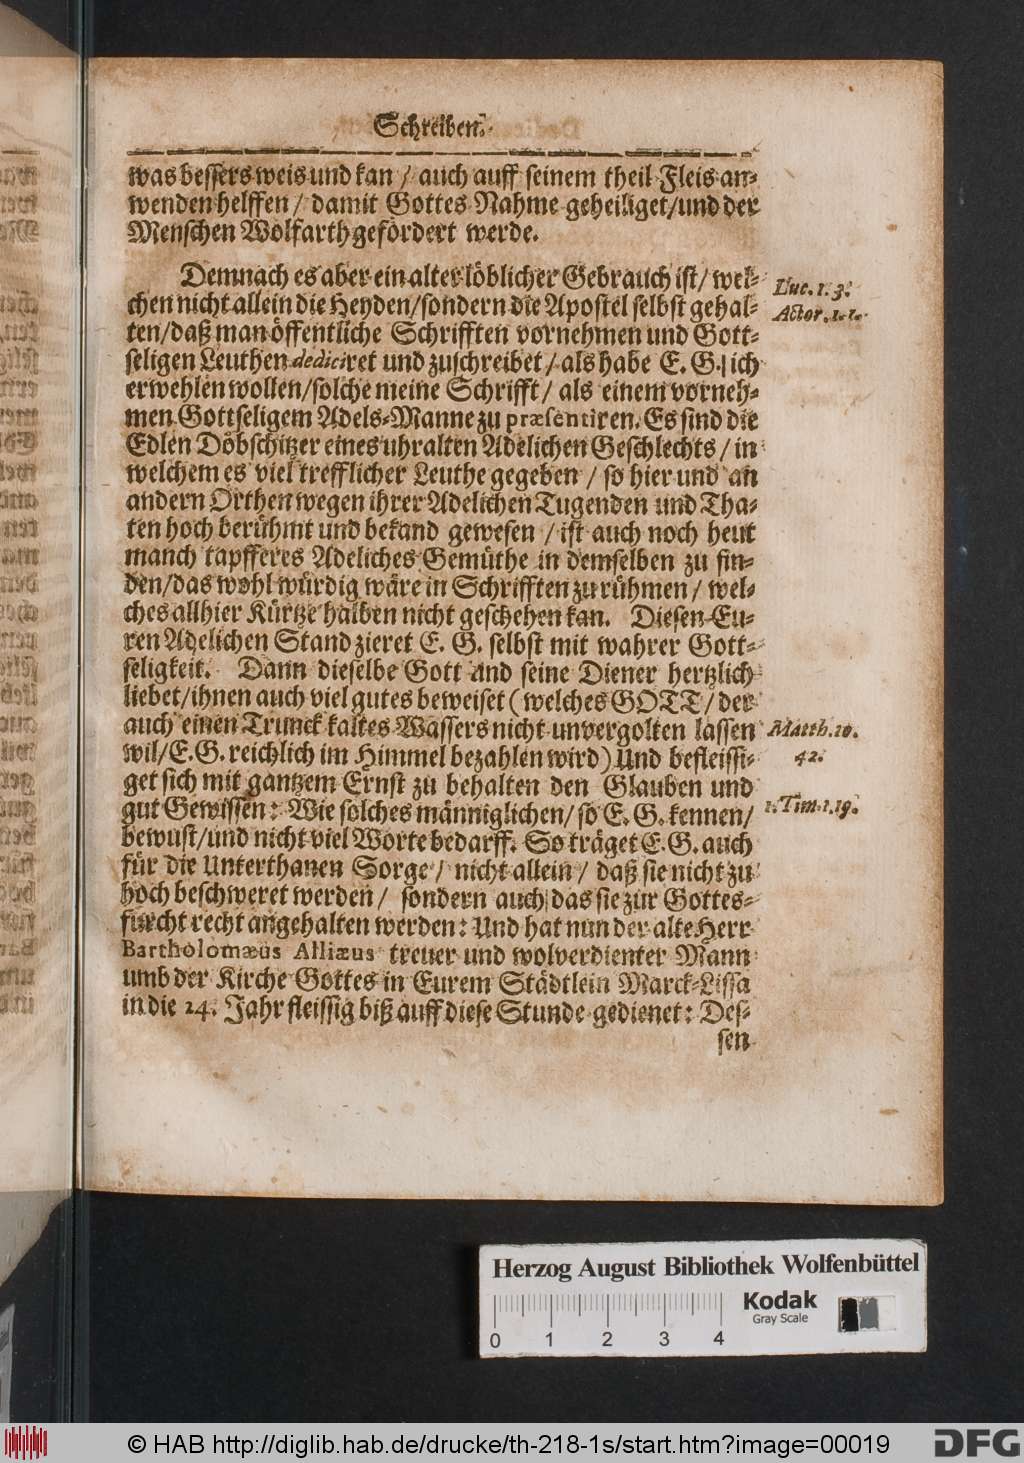 Schreiben.
was bessers weis und kan / auch auff seinem theil Fleis an-
wenden helffen / damit Gottes Nahme geheiliget/und der
Menschen Wolfarth gefördert werde.
Demnach es aber ein alter löblicher Gebrauch ist/ wel-
Luc. 1.3.
chen nicht allein die Heyden/sondern die Apostel selbst gehal-
Actor. 1.1.
ten/daß man öffentliche Schrifften vornehmen und Gott-
seligen Leuthen dediciret und zuschreibet / als habe E. G. ich
erwehlen wollen/solche meine Schrifft/ als einem vorneh-
men Gottseligem Adels-Manne zu præsentiren. Es sind die
Edlen Döbschitzer eines uhralten Adelichen Geschlechts / in
welchem es viel trefflicher Leuthe gegeben / so hier und an
andern Orthen wegen ihrer Adelichen Tugenden und Tha-
ten hoch berühmt und bekand gewesen / ist auch noch heut
manch tapfferes Adeliches Gemüthe in demselben zu fin-
den/das wohl würdig wäre in Schrifften zu rühmen / wel-
ches allhier Kürtze halben nicht geschehen kan. Diesen Eu-
ren Adelichen Stand zieret E. G. selbst mit wahrer Gott-
seligkeit. Dann dieselbe Gott und seine Diener hertzlich
liebet/ihnen auch viel gutes beweiset (welches GOTT/ der
auch einen Trunck kaltes Wassers nicht unvergolten lassen
Matth. 10.
wil/E. G. reichlich im Himmel bezahlen wird) Und befleissi-
42.
get sich mit gantzem Ernst zu behalten den Glauben und
gut Gewissen: Wie solches männiglichen/ so E. G. kennen/
1. Tim. 1.19.
bewust/und nicht viel Worte bedarff. So träget E. G. auch
für die Unterthanen Sorge/ nicht allein / daß sie nicht zu
hoch beschweret werden/ sondern auch das sie zur Gottes-
furcht recht angehalten werden: Und hat nun der alte Herr
Bartholomæus Alliæus treuer und wolverdienter Mann
umb der Kirche Gottes in Eurem Städtlein Marck-Lissa
in die 24. Jahr fleissig biß auff diese Stunde gedienet: Des-
sen
Herzog August Bibliothek Wolfenbüttel
Kodak
Gray Scale
0 1 2 3 4
© HAB http://diglib.hab.de/drucke/th-218-1s/start.htm?image=00019
DFG